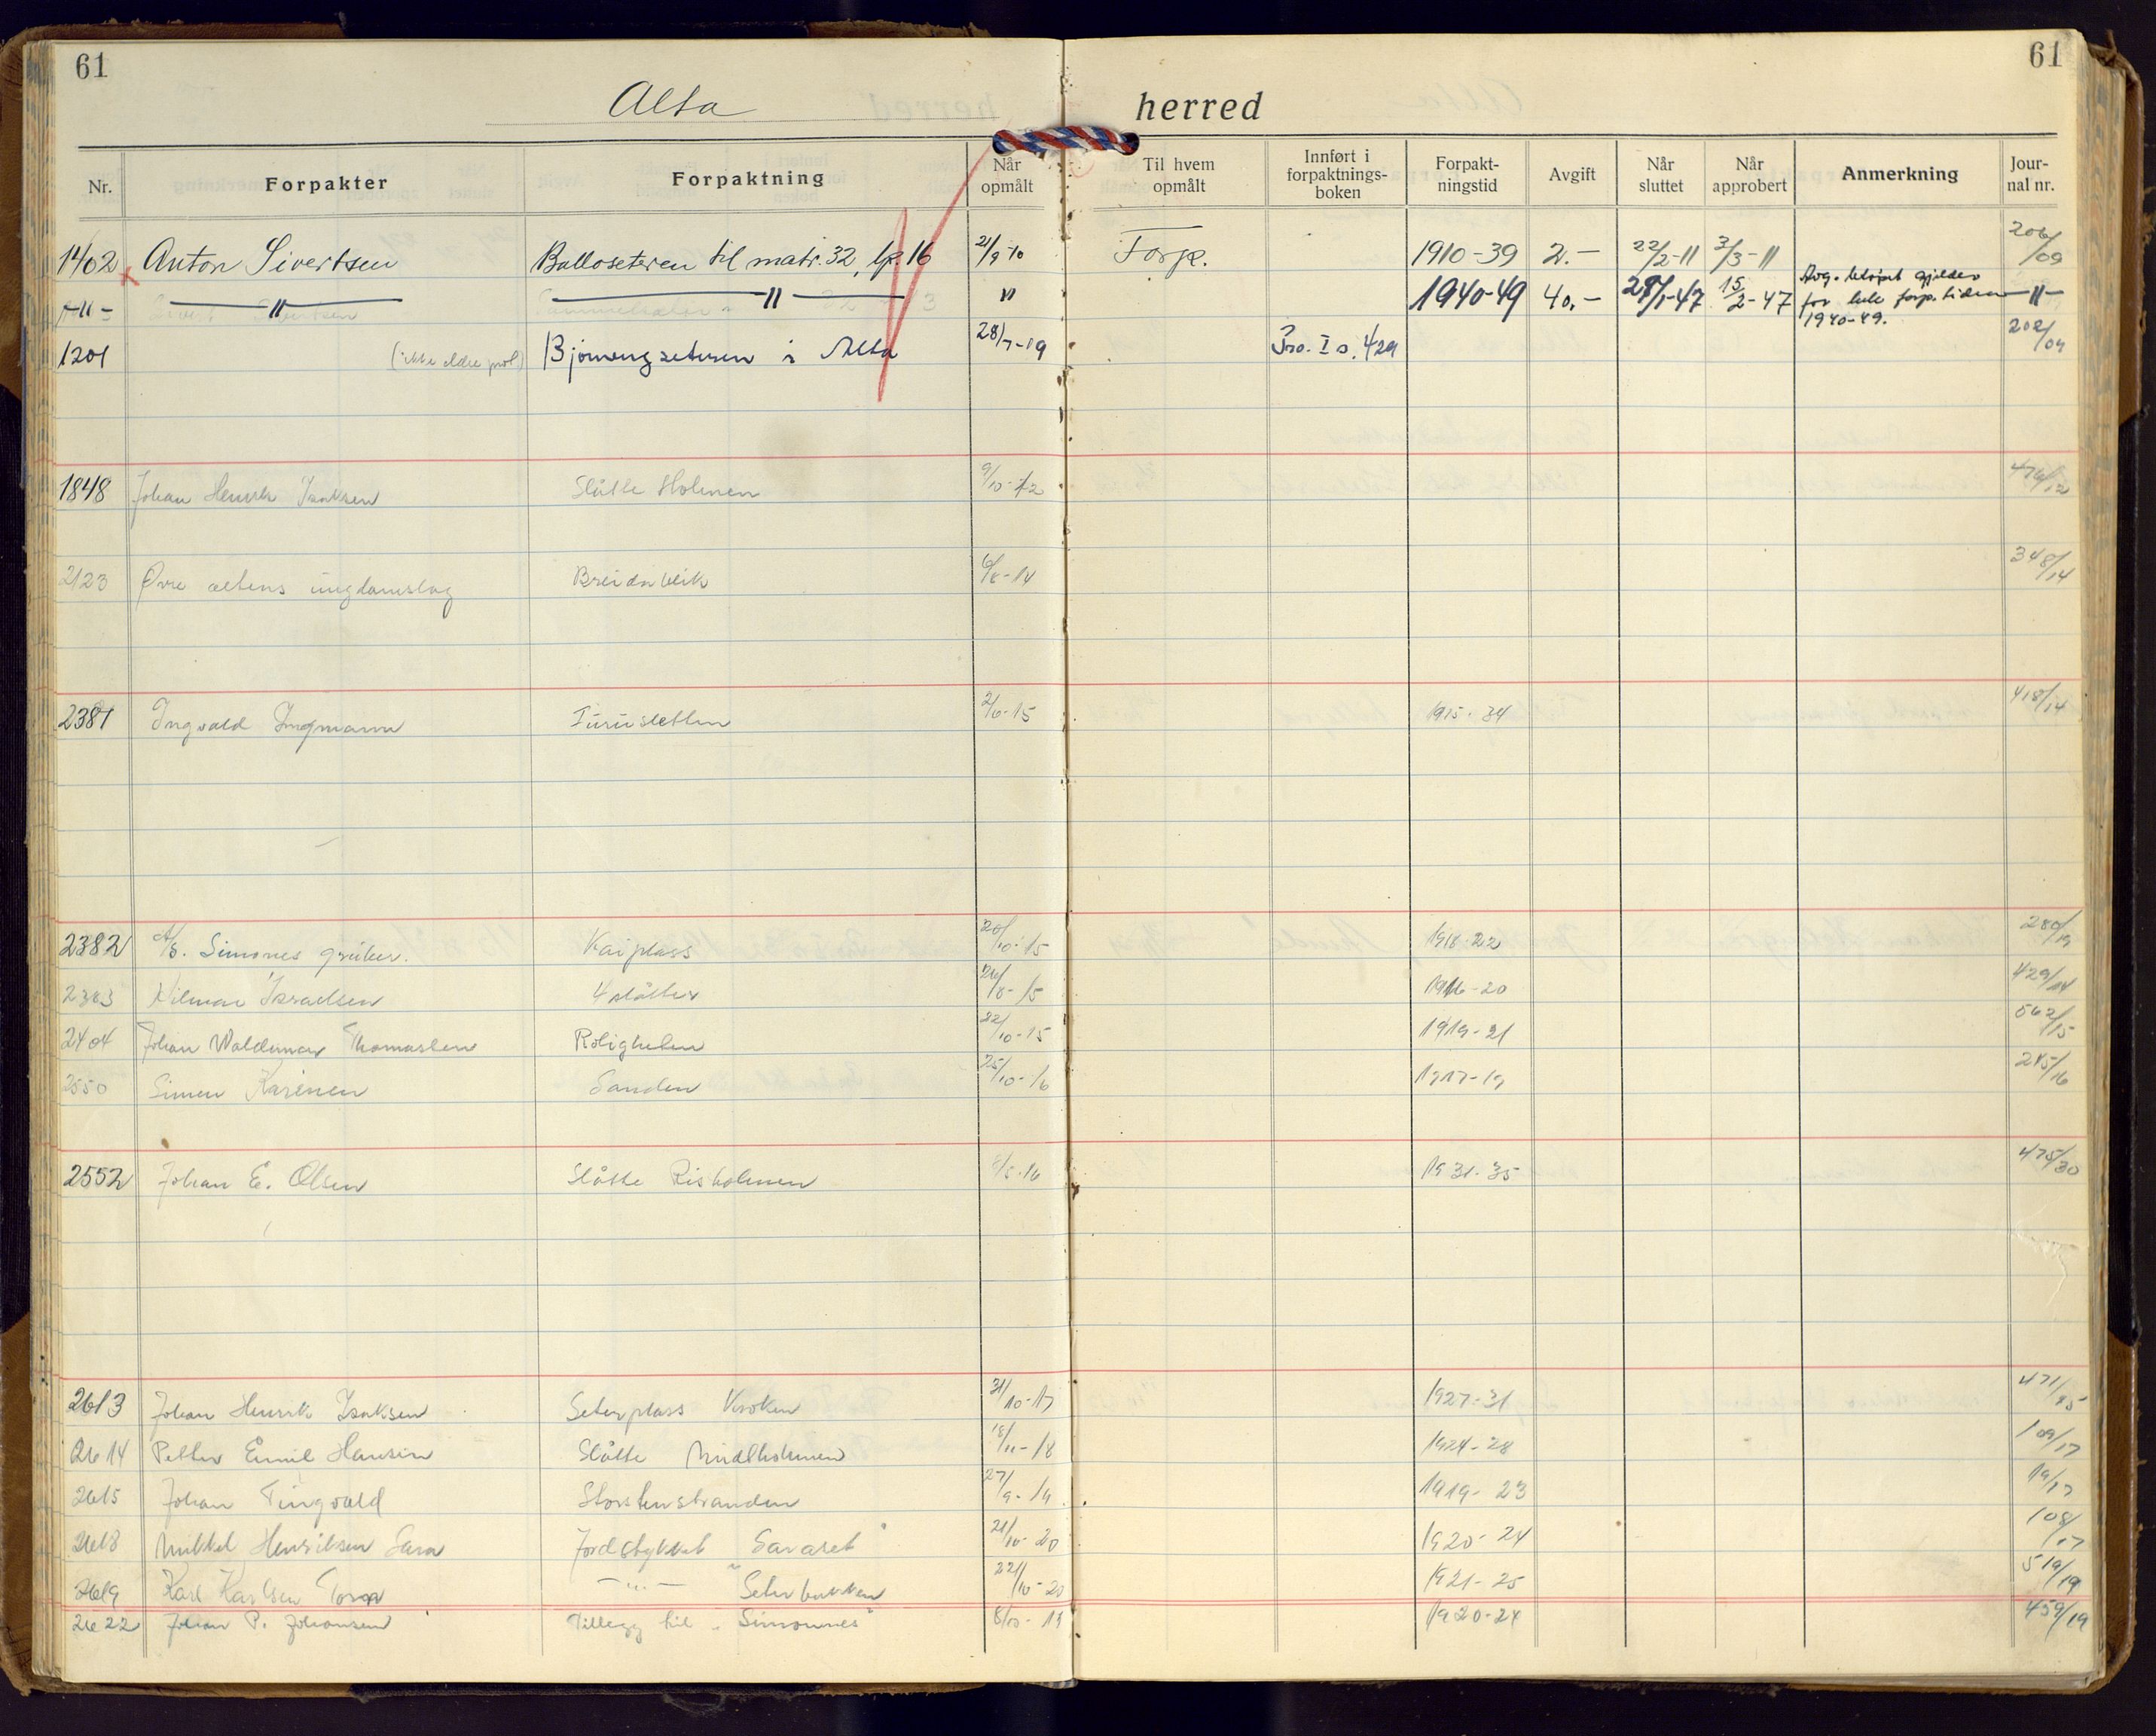 61 61
Alta herred
Nr. Forpakter Forpaktning Når opmålt Til hvem opmålt Innført i forpaktnings-boken Forpakt-ningstid Avgift Når sluttet Når approbert Anmerkning Jour-nal nr.
1402 Anton Sivertsen Balloseteren til matr. 32, lp. 16 21/9-10 Forp. 1910-39 2.- 22/2-11 3/3-11 206/09
-"- -"- -"- " 1940-49 40.- 28/1-47 15/2-47 Avg. beløpet gjelder for hele forp. tiden 1940-49. -"-
1201 (ikke eldre prot.) i Alta 28/7-19 Pro. I s. 429 202/09
1848 Johan Henrik Isaksen Slåtte Holmen 9/10-12 476/12
2123 Øvre altens ungdomslag Breidablik 6/8-14 348/14
2381 Ingvald Ingmann Furusletten 2/6-15 1915-34 418/14
2382 A/S. Simones gruber. Kaiplass 20/10-15 1918-22 280/19
2383 Hilmar Israelsen 4 slåtter 26/8-15 1916-20 429/14
2404 Johan Waldemar Thomassen Roligheten 22/10-15 1919-21 562/15
2550 Simen Karenen Sanden 25/10-16 1917-19 285/16
2552 Johan E. Olsen Slåtte Risholmen 8/5-16 1931-35 475/30
2613 Johan Henrik Isaksen Seterplass Kroken 31/10-17 1927-31 471/25
2614 Petter Emil Hansen Slåtte Midtholmen 18/11-18 1924-28 109/17
2615 Johan Tingvold Storstenstranden 27/9-19 1919-23 19/17
2618 Mikkel Henriksen Sara Jordstykket "Savaset" 21/10-20 1920-24 108/17
2619 Karl Karlsen -"- "Seterbakken 22/10-20 1921-25 519/19
2622 Johan P. Johansen Tillegg til "Simonnes" 8/10-19 1920-24 459/19